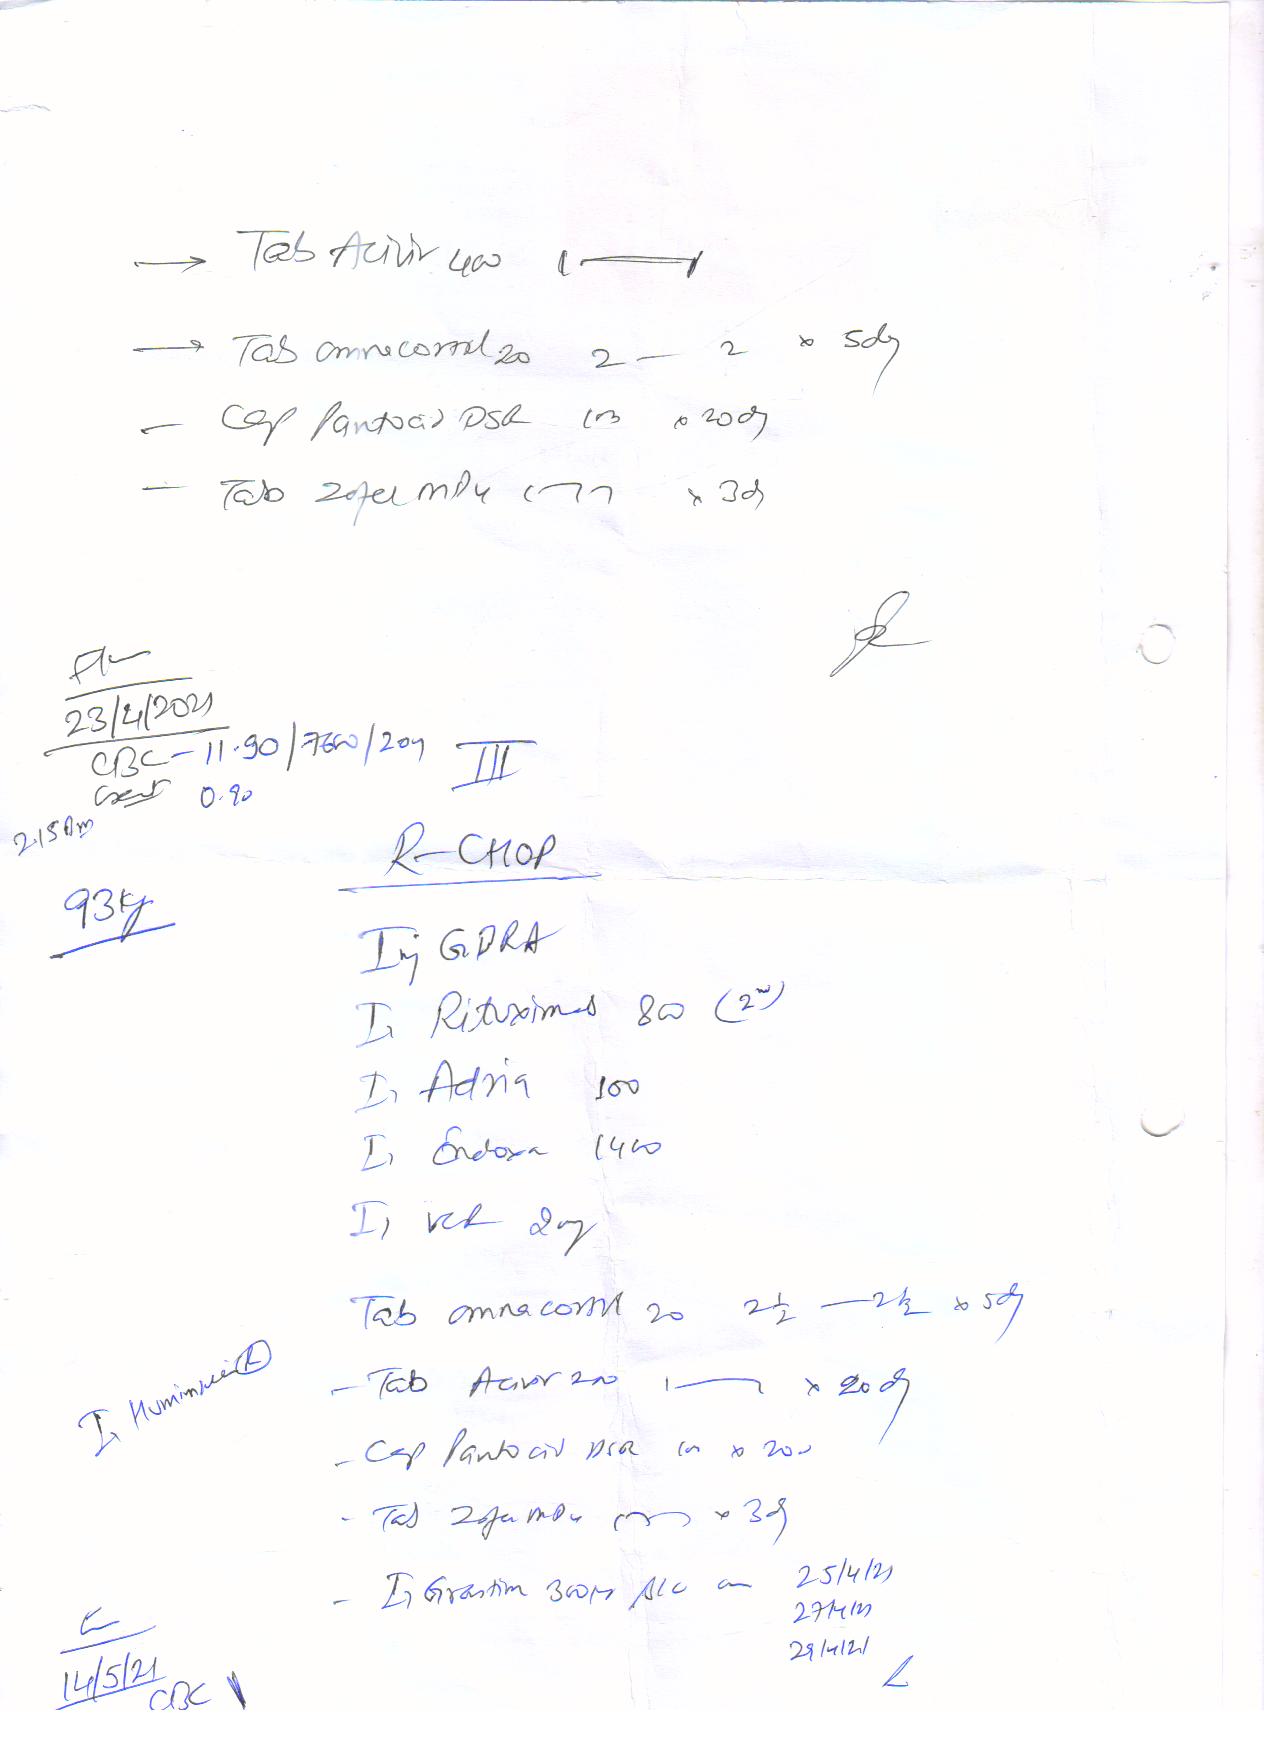 → Tab Acivir 400 1 — 1
→ Tab omnacortil 20 2 — 2 x 5dy
- Cap Pantocid DSR x 20dy
- Tab Zofer MD4 x 3d
23/4/2021
CBC - 11.90/7600/209
III
Creat 0.90
R-CHOP
93kg
Inj GDRA
I, Rituximab 800 (2nd)
I, Adria 100
I, Endoxa 1400
I, VCR 2mg
Tab omnacortil 20 2½ — 2½ x 5dy
- Tab Acivir 200 x 20dy
- Cap Pantocid DSR x 20
- Tab Zofer MD4 x 3d
- I, Grastim 300 S/C on 25/4/21
27/4/21
29/4/21
14/5/21
CBC